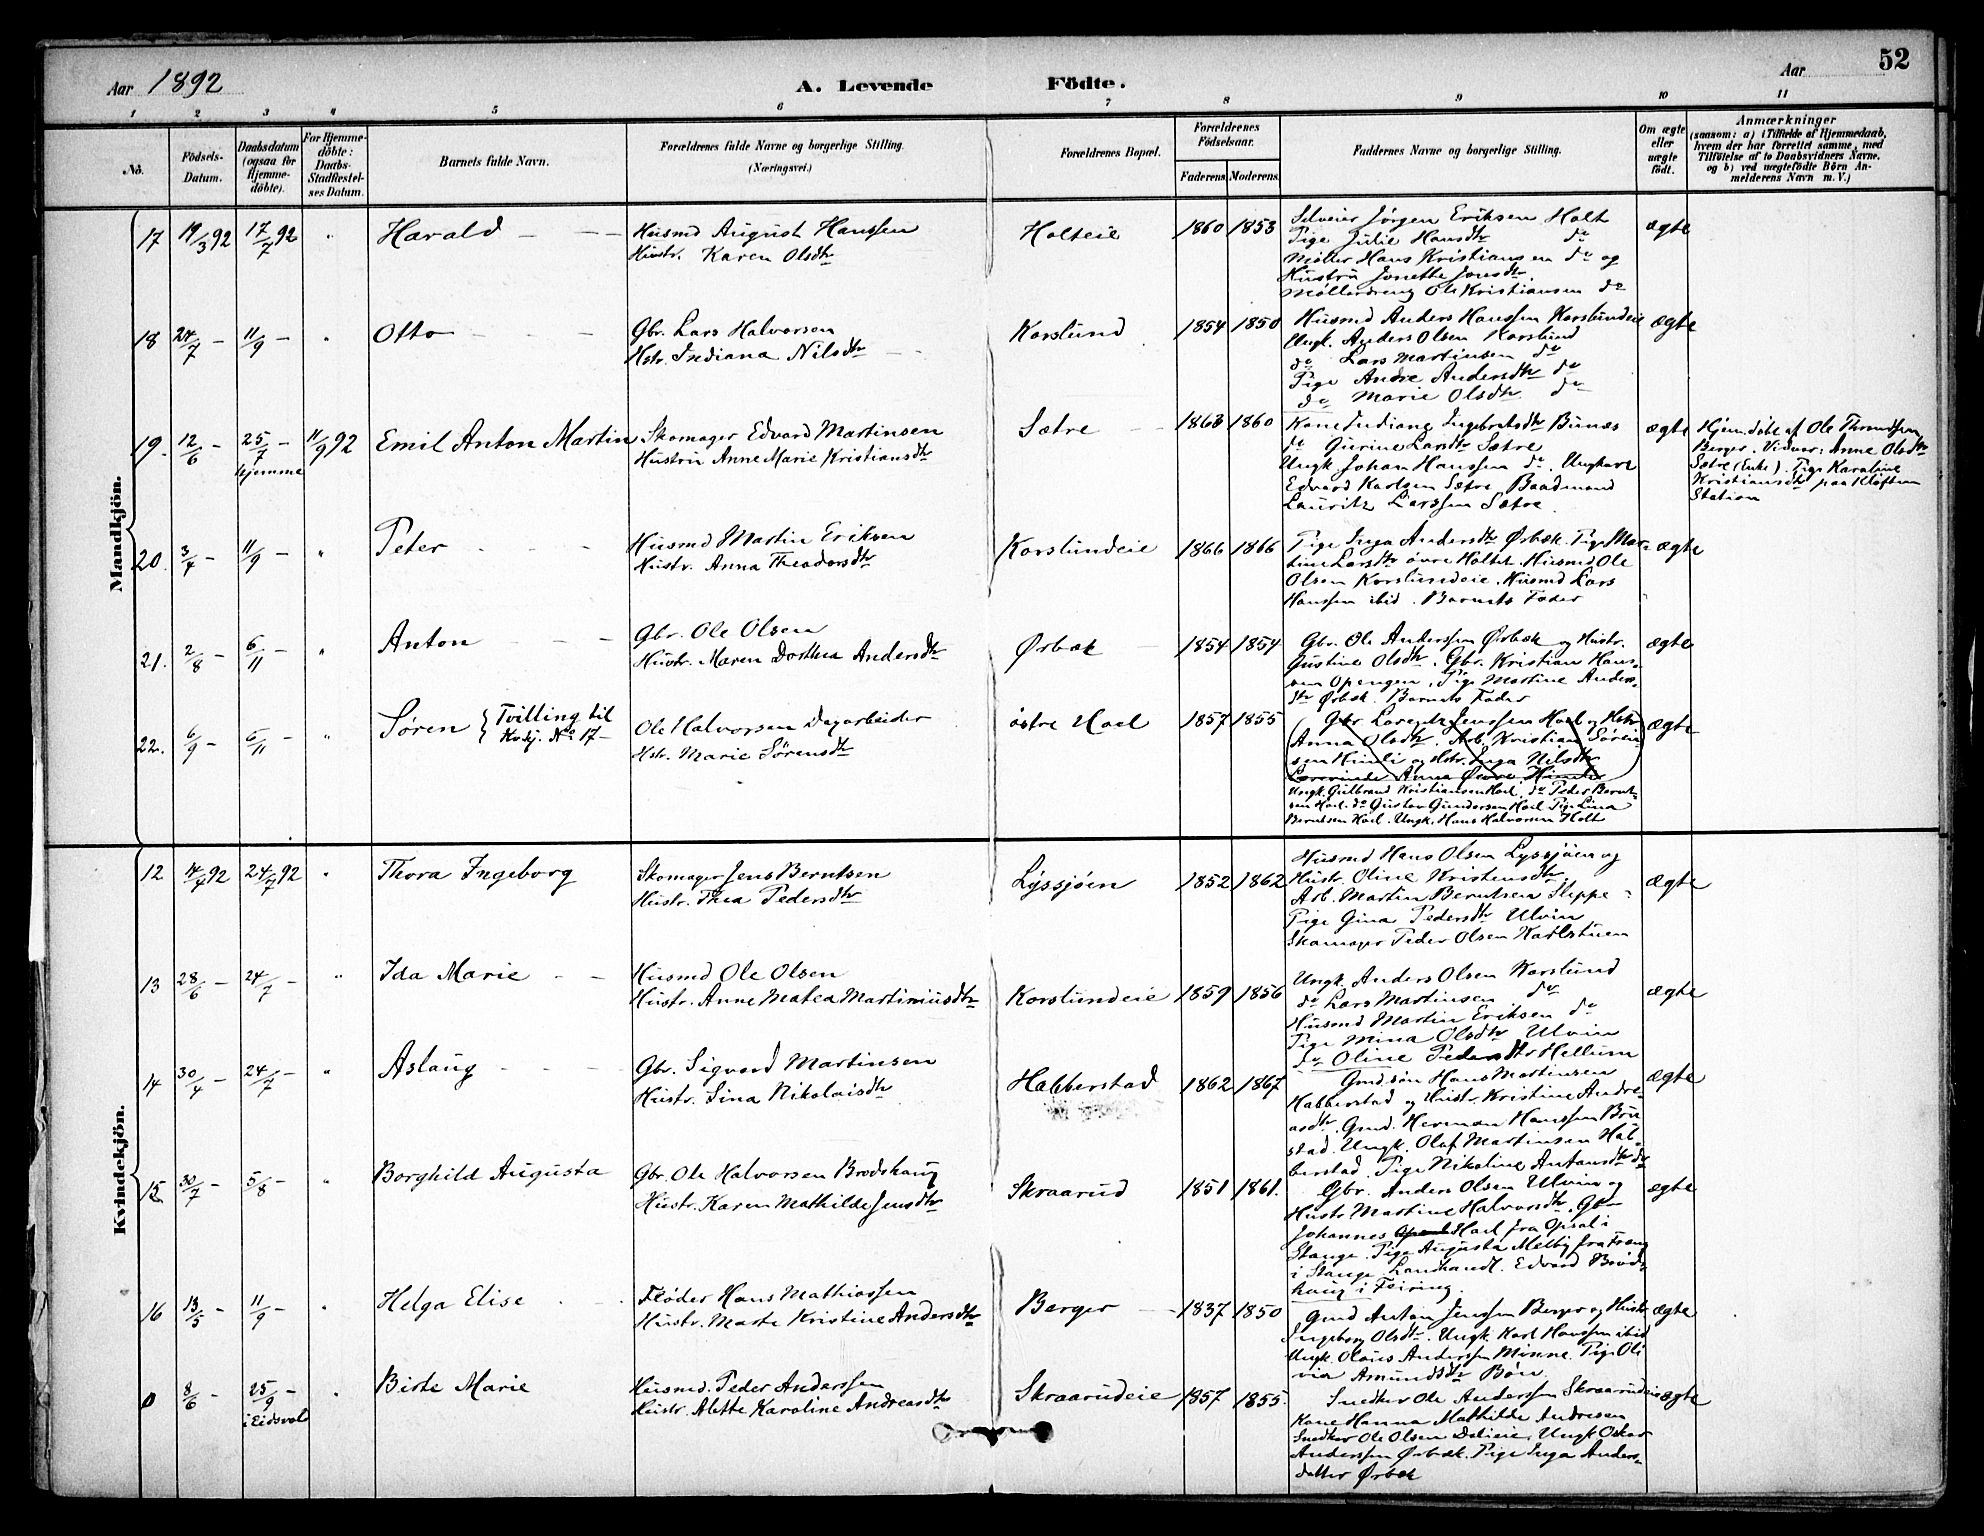 52
Aar 1892
A. Levende Födte.
Aar
1 2 3 4 5 6 7 8 9 10 11
No.
Födsels-
Datum.
Daabsdatum
(ogsaa for
Hjemme-
döbte).
For Hjemme-
döbte:
Daabs-
Stadfæstel-
ses Datum.
Barnets fulde Navn.
Forældrenes fulde Navne og borgerlige Stilling.
(Næringsvei.)
Forældrenes Bopæl.
Forældrenes
Födselsaar.
Faderens. Moderens.
Faddernes Navne og borgerlige Stilling.
Om ægte
eller
uægte
födt.
Anmærkninger
(saasom: a) i Tilfælde af Hjemmedaab,
hvem der har forrettet samme, med
Tilföielse af to Daabsvidners Navne,
og b) ved uægtefödte Börn An-
melderens Navn m. V.)
Mandkjön.
17 19/3 92 17/7 92 " Harald
Husmd August Hanssen
Hustr. Karen Olsdtr
Holteie 1860 1853
Selveier Jørgen Eriksen Holt
Pige Julie Hansdtr do
Møller Hans Kristiansen do og
Hustru Jonette Jonsdtr
Møllerdreng Ole Kristiansen do
ægte
18 24/7 - 11/9 - " Otto
Gbr. Lars Halvorsen
Hstr. Indiana Nilsdtr
Korslund 1854 1850
Husmd Anders Hanssen Korslundeie
Ungk. Anders Olsen Korslund
do Lars Martinsen do
Pige Andre Andersdtr do
do Marie Olsdtr do
ægte
19. 12/6 - 25/7 - hjemme 11/9 92 Emil Anton Martin
Skomager Edvard Martinsen
Hustru Anne Marie Kristiansdtr
Sætre 1863 1860
Kone Indiane Ingebretsdtr Bunæs
do Gurine Larsdtr Sætre
Ungk Johan Hanssen do. Ungkarl
Edvard Karlsen Sætre Baadmand
Lauritz Larssen Sætre
ægte
Hjem.døbt af Ole Throndsen
Berger. Vidner: Anne Olsdtr
Sætre (Enke). Pige Karoline
Kristiansdtr paa Kløften
Station
20. 3/4 - 11/9 - " Peter
Husmd Martin Eriksen
Hustr. Anna Theodorsdtr
Korslundeie 1866 1866
Pige Inga Andersdtr Ørbæk. Pige Mar-
tine Larsdtr övre Holtet. Husmd Ole
Olsen Korslundeie. Husmd Lars
Hanssen ibid. Barnets Fader
ægte
21. 2/8 - 6/11 - " Anton
Gbr. Ole Olsen
Hustr. Maren Dorthea Andersdtr
Ørbæk 1854 1854
Gbr. Ole Anderssen Ørbæk og Hustr.
Gustine Olsdtr. Gbr. Kristian Hans-
sen Opengen. Pige Martine Anders-
dtr Ørbæk. Barnets Fader
ægte
22. 6/9 - 6/11 - " Søren { Tvilling til
Kvkj. No 17 -
Ole Halvorsen Dagarbeider
Hstr. Marie Sørensdtr
östre Hoel 1857 1855
Gbr Jenssen Hoel og Hstr
Anna Olsdtr. Arb. Kristian Søren-
sen Himli og Hstr. Inga Nilsdtr
Anna Øvre
Ungk. Gulbrand Kristiansen Hoel. do Peder Bernt-
sen Hoel. do Gustav Gundersen Hoel Pige Lina
Berntsen Hoel. Ungk. Hans Halvorsen Holt
ægte
Kvindekjön.
12 4/4 92 24/7 92 " Thora Ingeborg
Skomager Jens Berntsen
Hustr. Thea Pedersdtr
Lyssjøen 1852 1862
Husmd Hans Olsen Lyssjøen og
Hustr. Oline Kristensdtr
Arb. Martin Berntsen Steppe
Pige Gina Pedersdtr Ulvin
Skomager Peder Olsen Karlstuen
ægte
13 28/6 - 24/7 - " Ida Marie
Husmd Ole Olsen
Hustr. Anne Matea Martiniusdtr
Korslundeie 1859 1856
Ungk. Anders Olsen Korslund
do Lars Martinsen do
Husmd Martin Eriksen do
Pige Mina Olsdtr Ulvin
do Oline Pedersdtr Hellum
ægte
14 30/4 - 24/7 - " Aslaug
Gbr. Sigvard Martinsen
Hustr. Sina Nikolaisdtr
Habberstad 1862 1867
Gmd.søn Hans Martinsen
Habberstad og Hustr. Kristine Andre-
asdtr. Gmd. Herman Hanssen Bön
stad. Ungk. Olaf Martinsen Hab-
berstad. Pige Nikoline Antonsdtr do
ægte
15 30/7 - 5/8 - " Borghild Augusta
Gbr. Ole Halvorsen Brodshaug
Hustr. Karen Mathilde Jensdtr
Skraarud 1851 1861.
Gbr. Anders Olsen Ulvin og
Hustr Martine Halvorsdtr. Gbr
Johannes Hoel fra Opsal i
Stange. Pige Augusta Melby fra
i Stange Landhandl. Edvard Brods-
haug i Feiring.
ægte
16 13/5 - 11/9 - " Helga Elise
Fløder Hans Mathiassen
Hustr. Marte Kristine Andersdtr
Berger 1837 1850
Gmd Anton Jenssen Berger og Hustr
Ingeborg Olsdtr. Ungk. Karl Hanssen ibid
Ungk. Olaus Anderssen Minne. Pige Oli
via Amundsdtr Bön
ægte
0 8/6 - 25/9 - i Eidsvold " Birte Marie
Husmd. Peder Anderssen
Hustr. Alette Karoline Andreasdtr
Skraarudeie 1857 1855.
Snedker Ole Anderssen Skraarudeie
Kone Hanna Mathilde Andresen
Snedker Ole Olsen Dalieie, Ungk Oskar
Anderssen Ørbæk. Pige Inga Anders-
datter Ørbæk
ægte